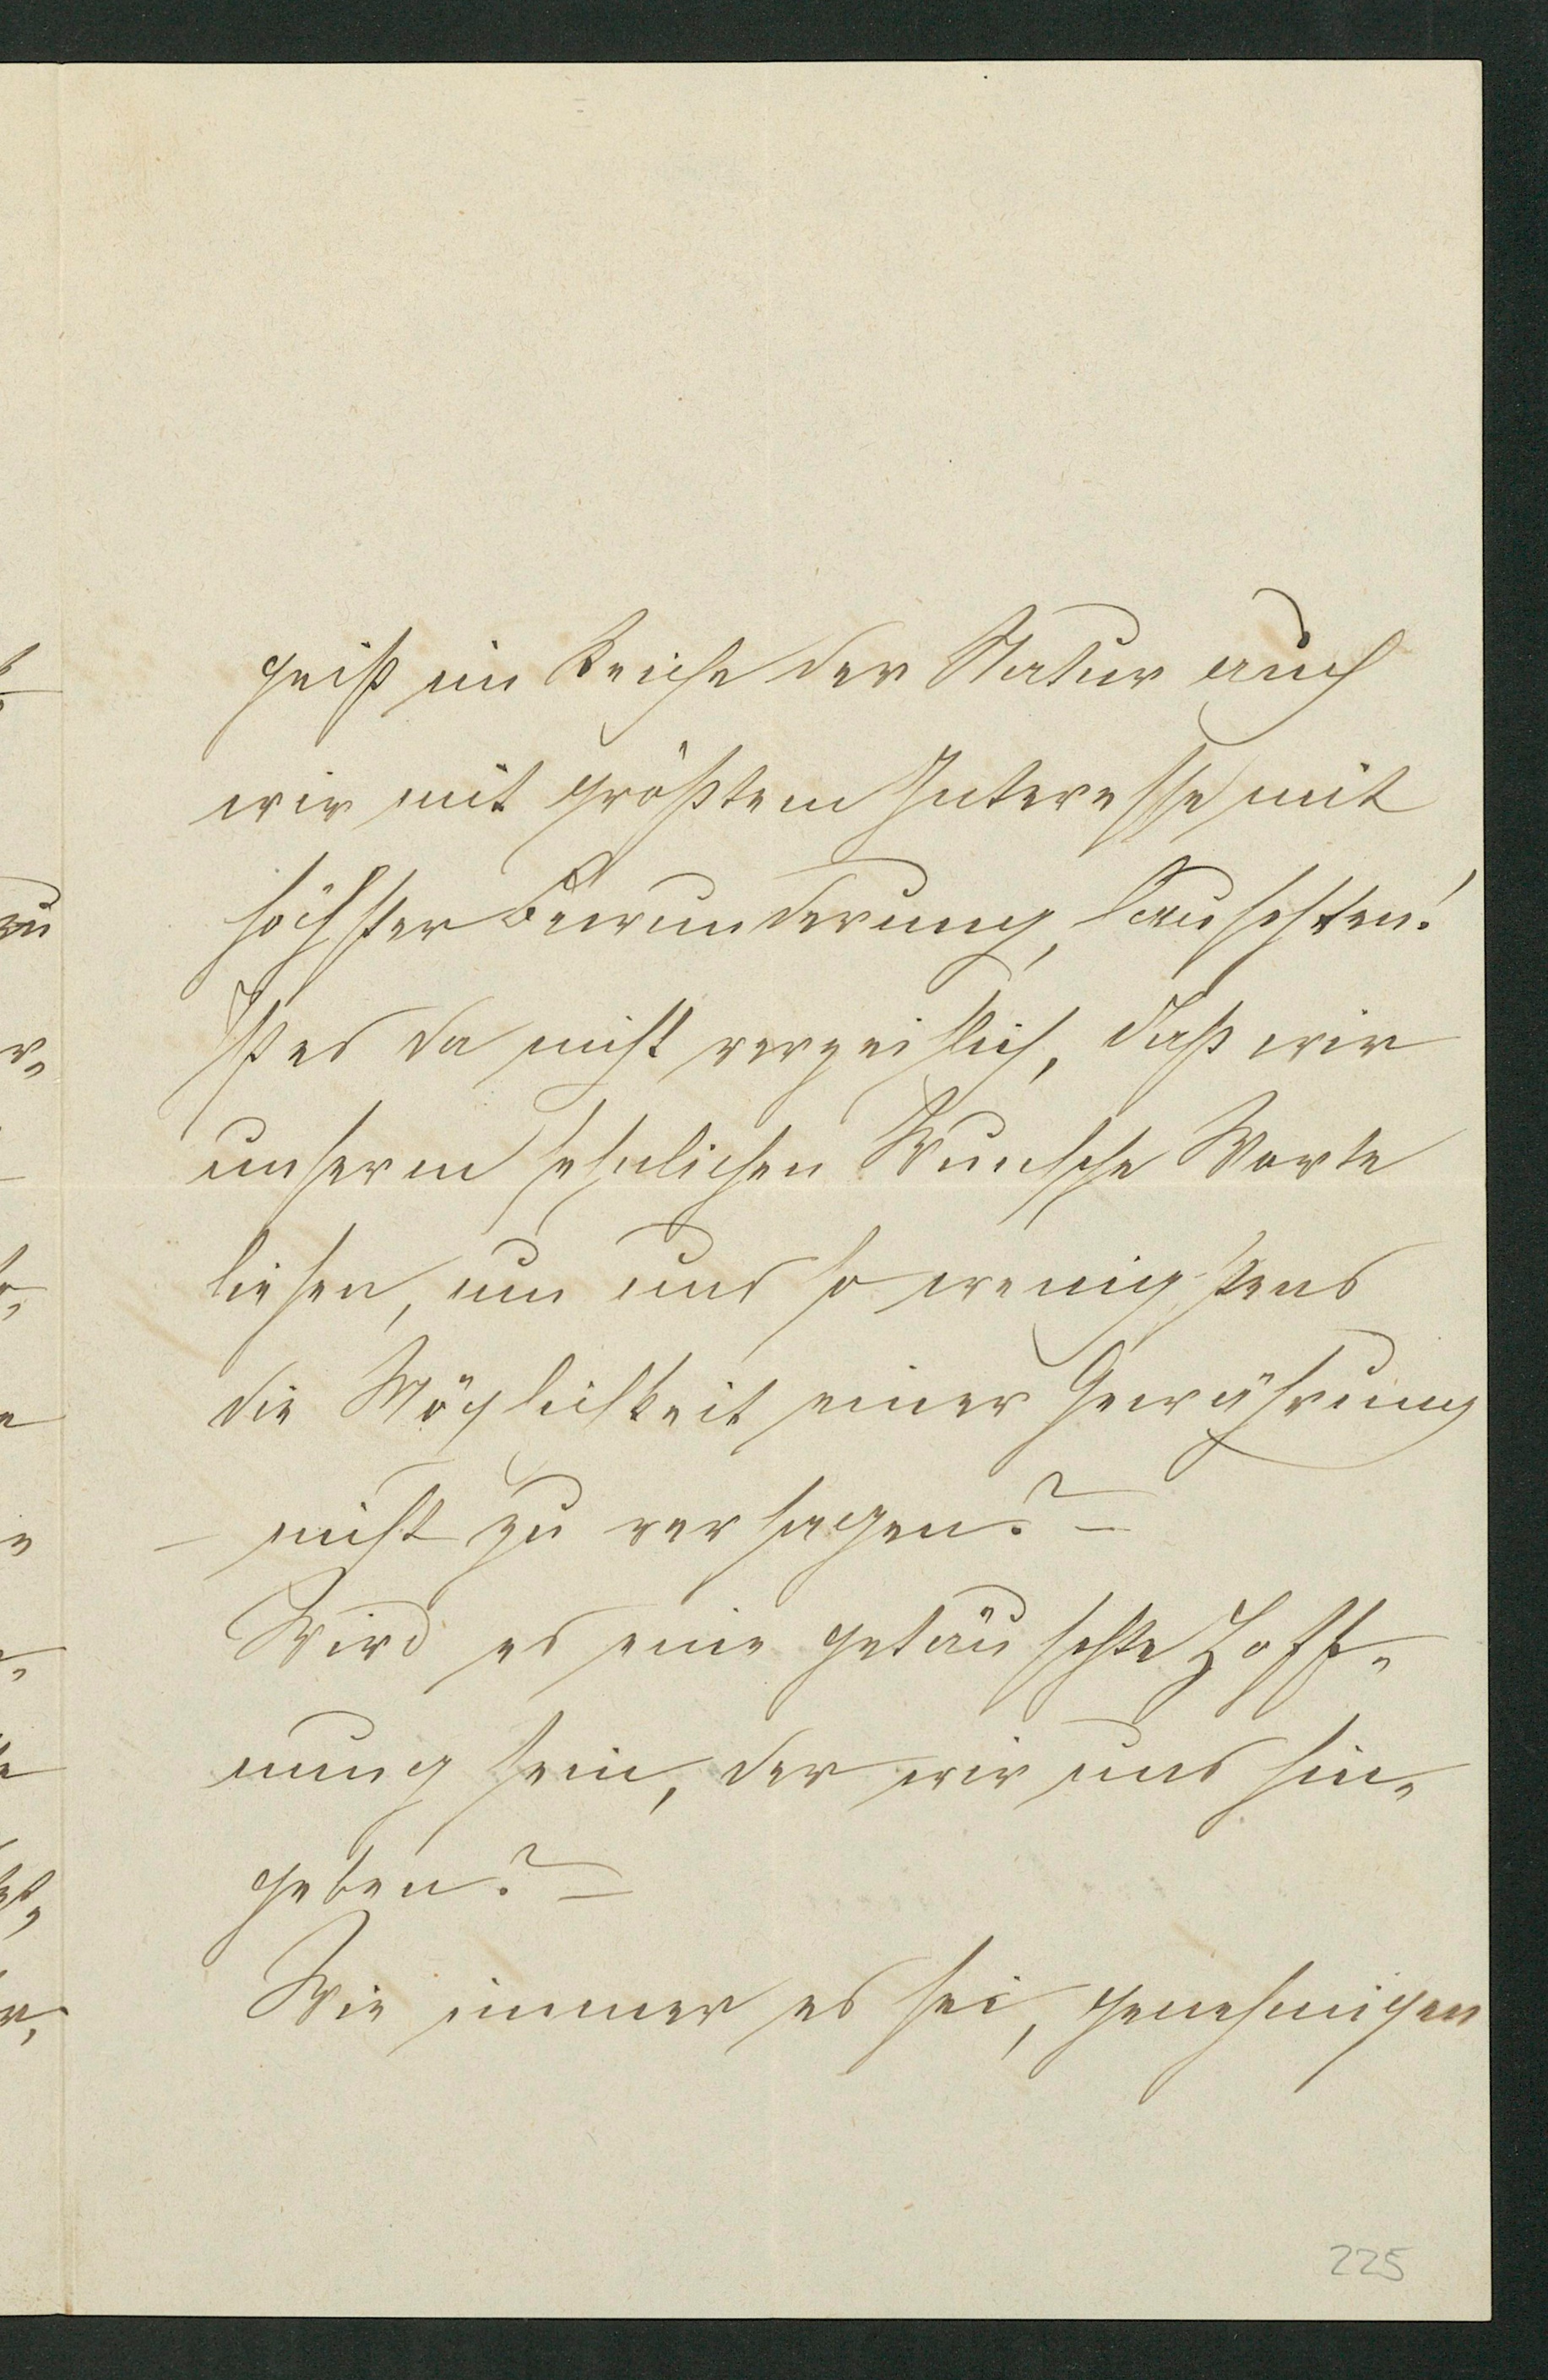 geist im Reiche der Natur auch
wir mit größtem Interesse mit
höchster Bewunderung lauschten!
Ist es da nicht verzeihlich, daß wir
unserem sehnlichen Wunsche Worte
liehen, um uns so wenigstens
die Möglichkeit einer Gewährung
nicht zu versagen? –
Wird es eine getäuschte Hoff„
nung sein, der wir uns hin„
geben? –
Wie immer es sei, genehmigen
225